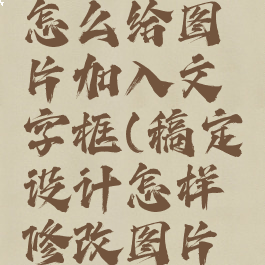 怎么给图
片加入文
字框(稿定
设计怎样
修改图片